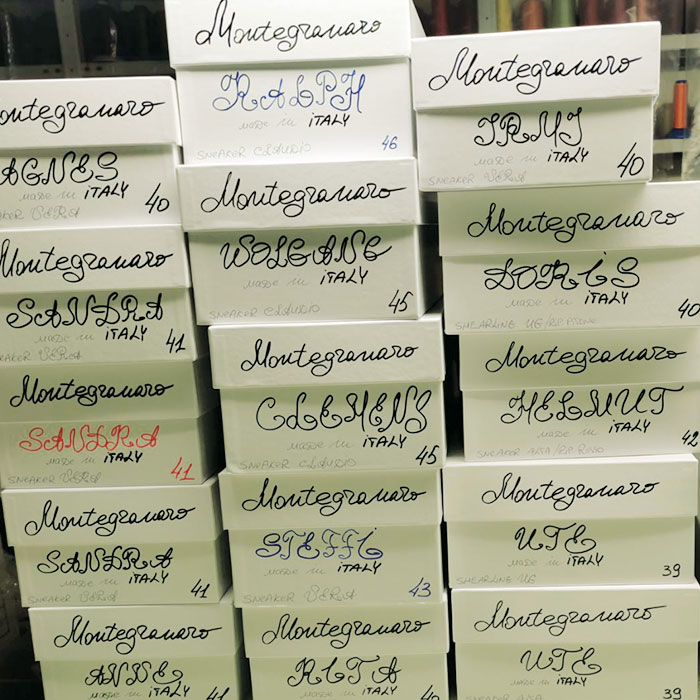 Montegranaro
AGNES
made in ITALY
SNEAKER VERA
40
Montegranaro
SANDRA
made in ITALY
SNEAKER VERA
41
Montegranaro
SANDRA
made in ITALY
SNEAKER VERA
41
Montegranaro
SANDRA
made in ITALY
SNEAKER VERA
41
Montegranaro
ANNE
made in ITALY
41
Montegranaro
RALPH
made in ITALY
SNEAKER CLAUDIO
46
Montegranaro
WOLGANG
made in ITALY
SNEAKER CLAUDIO
45
Montegranaro
CLEMENS
made in ITALY
SNEAKER CLAUDIO
45
Montegranaro
STEFFI
made in ITALY
SNEAKER VERA
43
Montegranaro
RITA
made in ITALY
40
Montegranaro
IRMI
made in ITALY
SNEAKER VERA
40
Montegranaro
DORIS
made in ITALY
SHEARLING UG/RIP.
40
Montegranaro
HELMUT
made in ITALY
SNEAKER
42
Montegranaro
UTE
made in ITALY
SHEARLING UG
39
Montegranaro
UTE
made in ITALY
SNEAKER
39